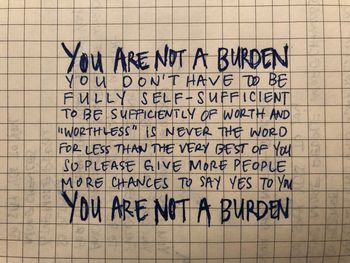 YOU ARE NOT A BURDEN
YOU DON'T HAVE TO BE
FULLY SELF-SUFFICIENT
TO BE SUFFICIENTLY OF WORTH AND
"WORTHLESS" IS NEVER THE WORD
FOR LESS THAN THE VERY BEST OF YOU
SO PLEASE GIVE MORE PEOPLE
MORE CHANCES TO SAY YES TO YOU
YOU ARE NOT A BURDEN